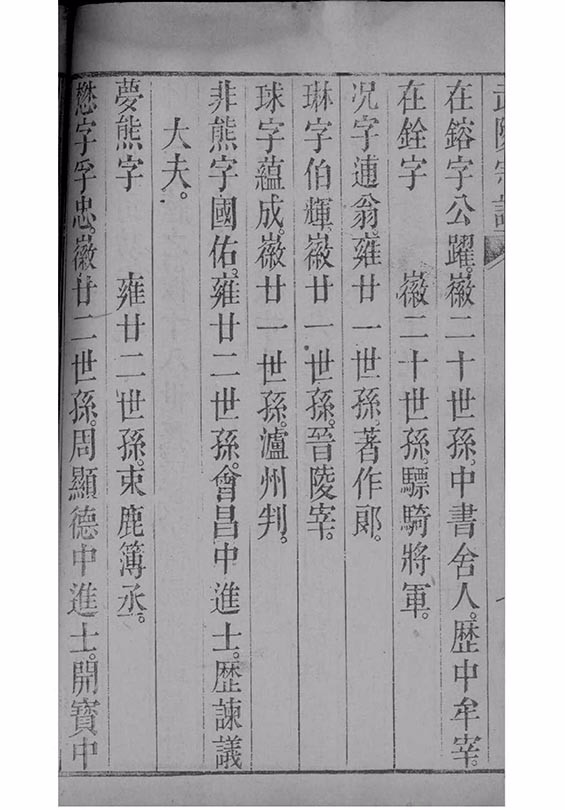 武陵宗譜
在鎔字公躍。徽二十世孫。中書舍人。歷中牟宰。
在銓字　　徽二十世孫。驃騎將軍。
况字連翁。雍廿一世孫。著作郎。
琳字伯輝。徽廿一世孫。晉陵宰。
球字蘊成。徽廿一世孫。瀘州判。
非熊字國佑。雍廿二世孫。會昌中進士。歷諫議
大夫。
夢熊字　　雍廿二世孫。束鹿簿丞。
懋字孚忠。徽廿二世孫。周顯德中進士。開寶中